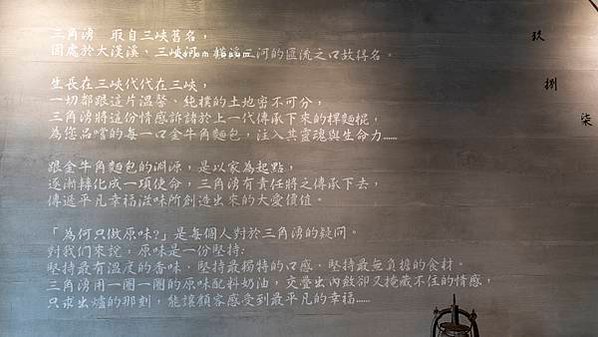 三角湧　取自三峽舊名，
因處於大漢溪、三峽河、橫溪三河的匯流之口故得名。
生長在三峽代代在三峽，
一切都跟這片溫馨、純樸的土地密不可分，
三角湧將這份情感訴諸於上一代傳承下來的桿麵棍，
為您品嚐的每一口金牛角麵包，注入其靈魂與生命力……
跟金牛角麵包的淵源，是以家為起點，
逐漸轉化成一項使命，三角湧有責任將之傳承下去，
傳遞平凡幸福滋味所創造出來的大愛價值。
「為何只做原味?」是每個人對於三角湧的疑問。
對我們來說，原味是一份堅持：
堅持最有溫度的香味、堅持最獨特的口感、堅持最無負擔的食材。
三角湧用一圈一圈的原味配料奶油，交疊出內斂卻又掩藏不住的情感，
只求出爐的那刻，能讓顧客感受到最平凡的幸福……
玖
捌
柒